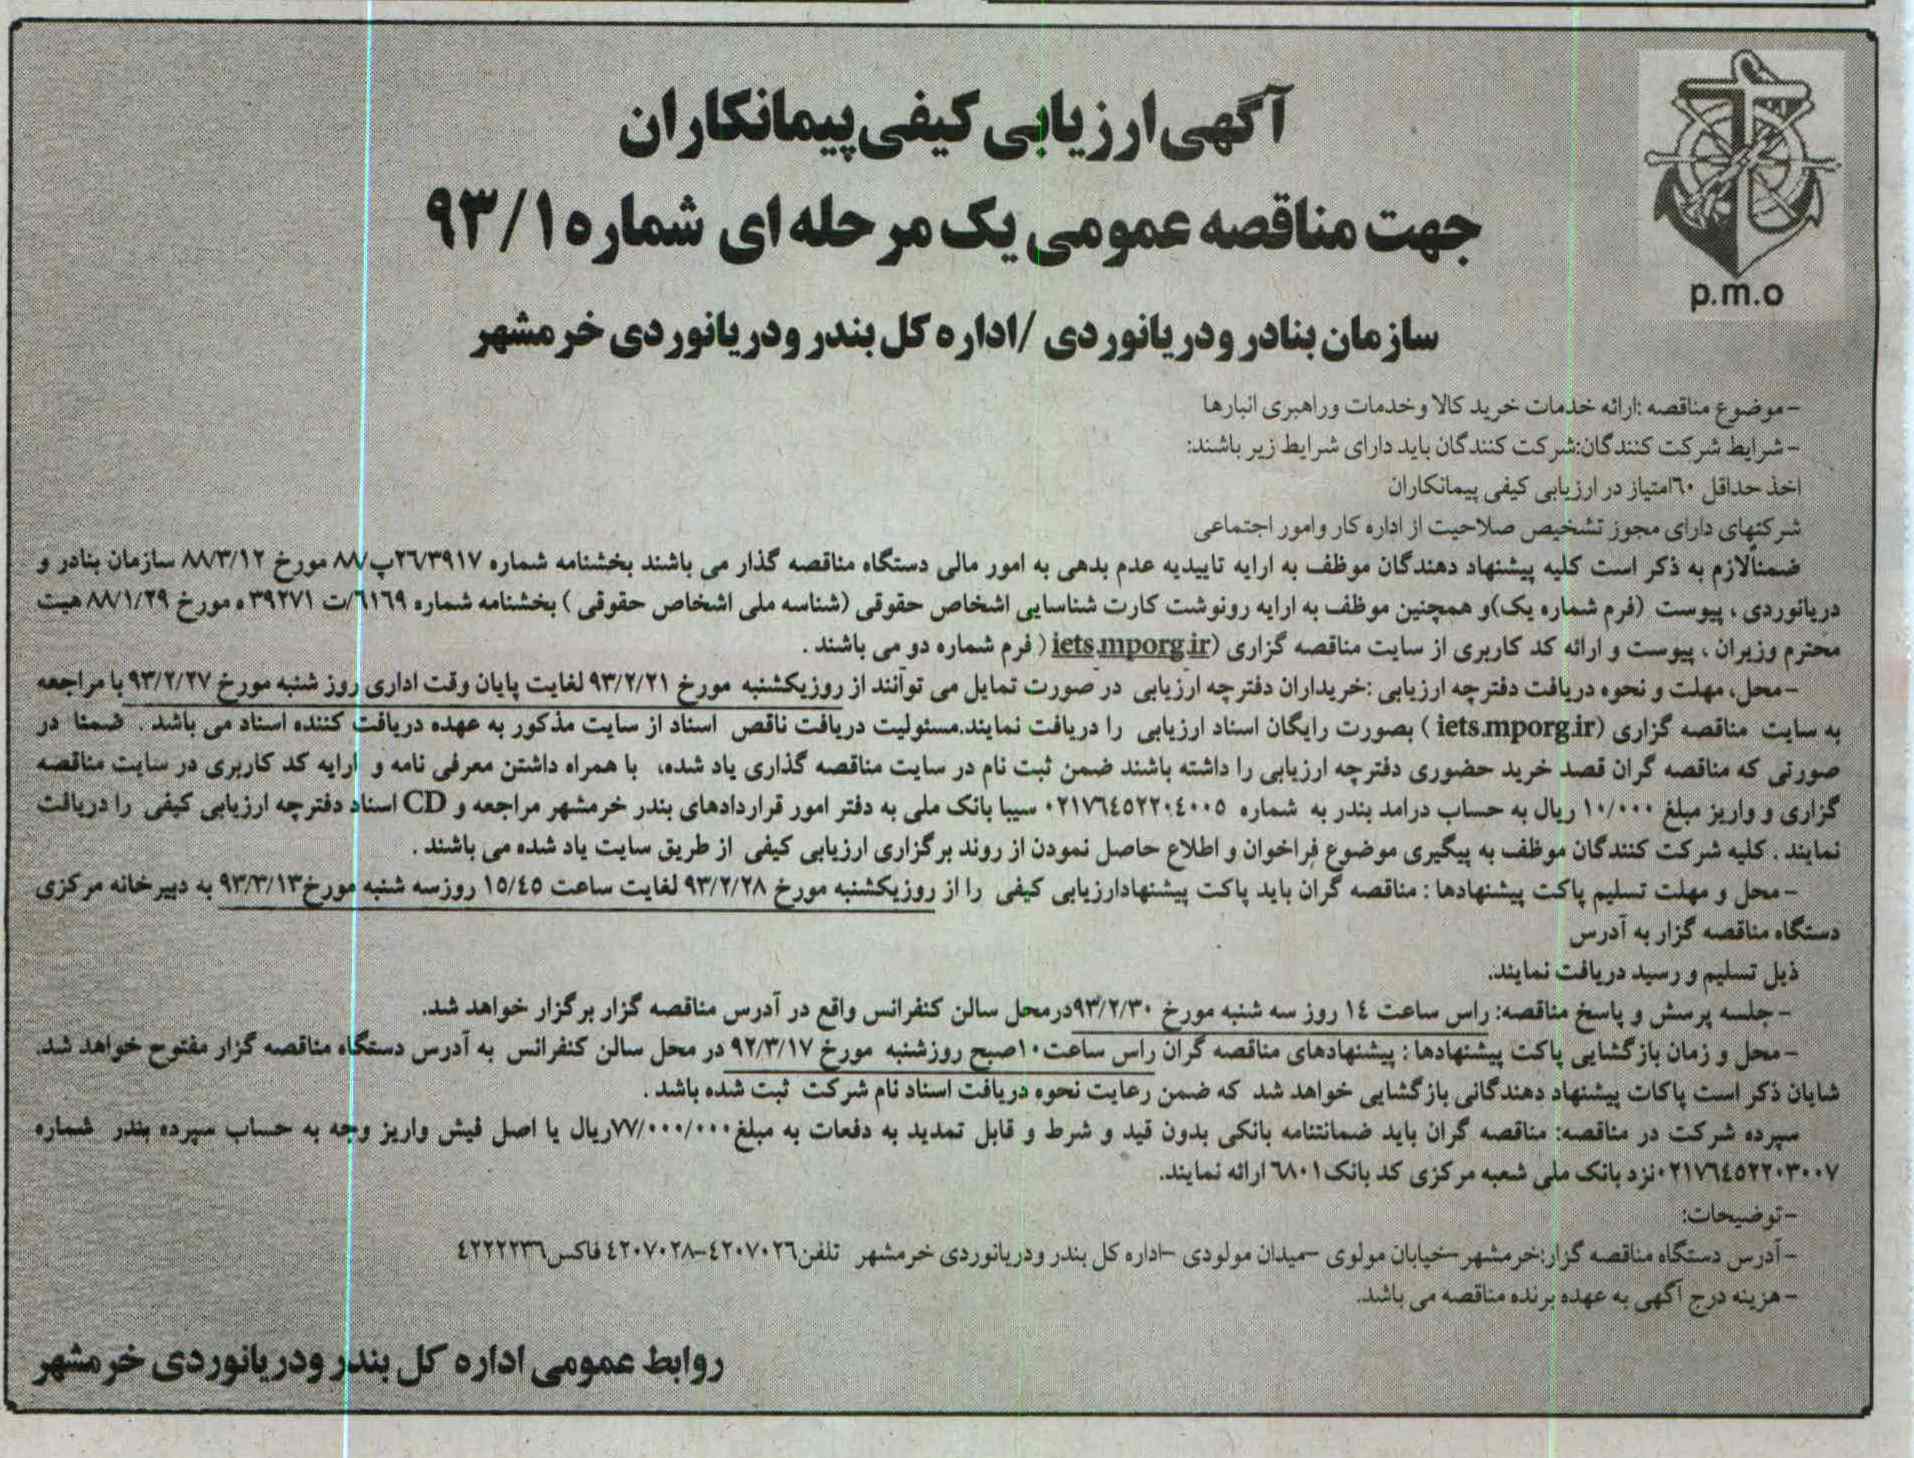 آگهی ارزیابی کیفی پیمانکاران
جهت مناقصه عمومی یک مرحله ای شماره ۹۳/۱
p.m.o
سازمان بنادر ودریانوردی /اداره کل بندر ودریانوردی خرمشهر
-موضوع مناقصه :ارائه خدمات خرید کالا وخدمات وراهبری انبارها
-شرایط شرکت کنندگان:شرکت کنندگان باید دارای شرایط زیر باشند:
اخذ حداقل ۶۰امتیاز در ارزیابی کیفی پیمانکاران
شرکتهای دارای مجوز تشخیص صلاحیت از اداره کار وامور اجتماعی
ضمنالازم به ذکر است کلیه پیشنهاد دهندگان موظف به ارایه تاییدیه عدم بدهی به امور مالی دستگاه مناقصه گذار می باشند بخشنامه شماره ۲۶/۳۹۱۷پ/۸۸ مورخ ۸۸/۳/۱۲ سازمان بنادر و
دریانوردی ، پیوست (فرم شماره یک)و همچنین موظف به ارایه رونوشت کارت شناسایی اشخاص حقوقی (شناسه ملی اشخاص حقوقی ) بخشنامه شماره ۶۱۶۹/ت ۳۹۲۷۱ ه مورخ ۸۸/۱/۲۹ هیت
محترم وزیران ، پیوست و ارائه کد کاربری از سایت مناقصه گزاری (iets.mporg.ir ( فرم شماره دو می باشند .
-محل، مهلت و نحوه دریافت دفترچه ارزیابی :خریداران دفترچه ارزیابی در صورت تمایل می توانند از روزیکشنبه مورخ ۹۳/۲/۲۱ لغایت پایان وقت اداری روز شنبه مورخ ۹۳/۲/۲۷ با مراجعه
به سایت مناقصه گزاری (iets.mporg.ir ) بصورت رایگان اسناد ارزیابی را دریافت نمایند.مسئولیت دریافت ناقص اسناد از سایت مذکور به عهده دریافت کننده اسناد می باشد . ضمنا در
صورتی که مناقصه گران قصد خرید حضوری دفترچه ارزیابی را داشته باشند ضمن ثبت نام در سایت مناقصه گذاری یاد شده، با همراه داشتن معرفی نامه و ارایه کد کاربری در سایت مناقصه
گزاری و واریز مبلغ ۱۰/۰۰۰ ریال به حساب درامد بندر به شماره ۰۲۱۷۶۴۵۲۲۰۴۰۰۵ سیبا بانک ملی به دفتر امور قراردادهای بندر خرمشهر مراجعه و CD اسناد دفترچه ارزیابی کیفی را دریافت
نمایند . کلیه شرکت کنندگان موظف به پیگیری موضوع فراخوان و اطلاع حاصل نمودن از روند برگزاری ارزیابی کیفی از طریق سایت یاد شده می باشند .
-محل و مهلت تسلیم پاکت پیشنهادها : مناقصه گران باید پاکت پیشنهادارزیابی کیفی را از روزیکشنبه مورخ ۹۳/۲/۲۸ لغایت ساعت ۱۵/۴۵ روزسه شنبه مورخ۹۳/۳/۱۳ به دبیرخانه مرکزی
دستگاه مناقصه گزار به آدرس
ذیل تسلیم و رسید دریافت نمایند.
-جلسه پرسش و پاسخ مناقصه: راس ساعت ۱۴ روز سه شنبه مورخ ۹۳/۲/۳۰درمحل سالن کنفرانس واقع در آدرس مناقصه گزار برگزار خواهد شد.
-محل و زمان بازگشایی پاکت پیشنهادها : پیشنهادهای مناقصه گران راس ساعت۱۰صبح روزشنبه مورخ ۹۲/۳/۱۷ در محل سالن کنفرانس به آدرس دستگاه مناقصه گزار مفتوح خواهد شد.
شایان ذکر است پاکات پیشنهاد دهندگانی بازگشایی خواهد شد که ضمن رعایت نحوه دریافت اسناد نام شرکت ثبت شده باشد .
سپرده شرکت در مناقصه: مناقصه گران باید ضمانتنامه بانکی بدون قید و شرط و قابل تمدید به دفعات به مبلغ۷۷/۰۰۰/۰۰۰ریال یا اصل فیش واریز وجه به حساب سپرده بندر شماره
۰۲۱۷۶۴۵۲۲۰۳۰۰۷نزد بانک ملی شعبه مرکزی کد بانک۶۸۰۱ ارائه نمایند.
-توضیحات:
-آدرس دستگاه مناقصه گزار:خرمشهر-خیابان مولوی -میدان مولودی -اداره کل بندر ودریانوردی خرمشهر تلفن۴۲۰۷۰۲۶-۴۲۰۷۰۲۸ فاکس۴۲۲۲۲۳۶
-هزینه درج آگهی به عهده برنده مناقصه می باشد.
روابط عمومی اداره کل بندر ودریانوردی خرمشهر